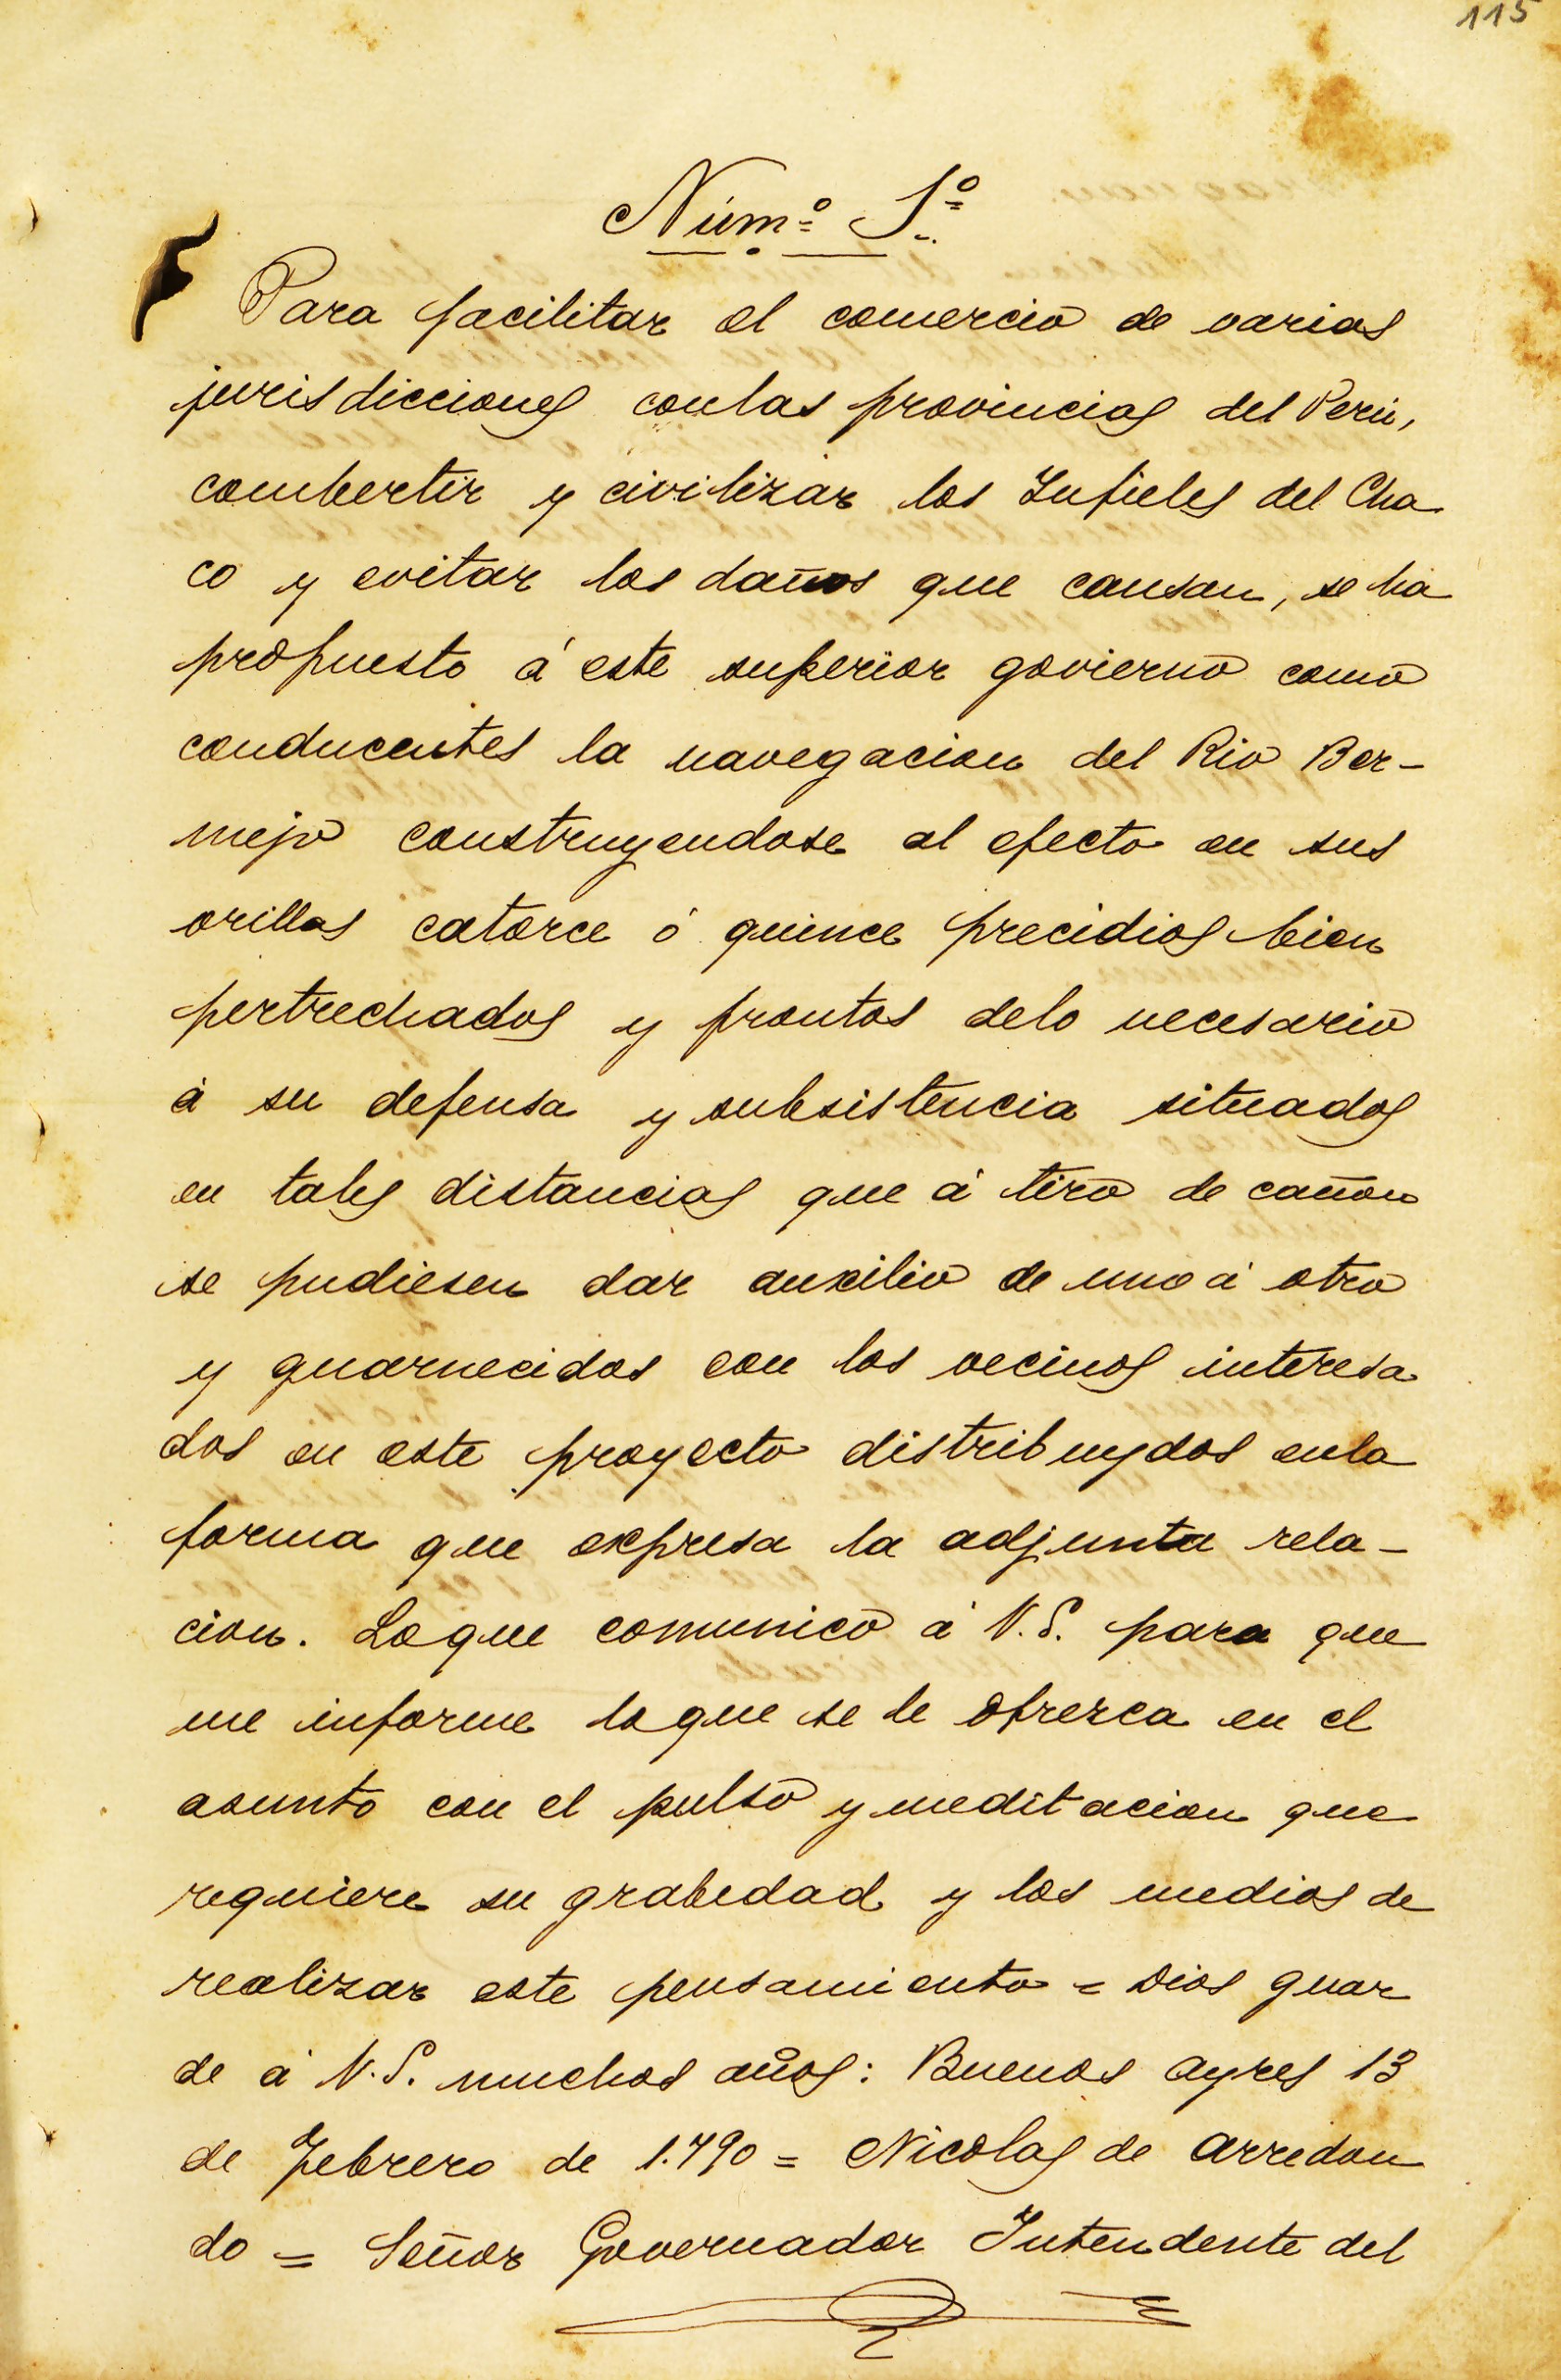 115
Núm.º 1.º
Para facilitar el comercio de varias
jurisdicciones conlas provincias del Perú,
combertir y civilizar los Infieles del Cha
co y evitar los daños que causan, se ha
propuesto á este superior govierno como
conducentes la navegacion del Rio Ber-
mejo construyendose al efecto en sus
orillas catorce ó quince precidios bien
pertrechados y prontos delo necesario
á su defensa y subsistencia situados
en tales distancias que á tiro de cañon
se pudiesen dar auxilio de uno á otro
y guarnecidos con los vecinos interesa
dos en este proyecto distribuydos enla
forma que expresa la adjunta rela-
cion. Loque comunico á V.S. para que
me informe loque se le ofrezca en el
asunto con el pulso y meditacion que
requiere su grabedad y los medios de
realizar este pensamiento = Dios guar
de á V.S. muchos años: Buenos ayres 13
de Febrero de 1.790 = Nicolas de Arredon
do = Señor Governador Intendente del